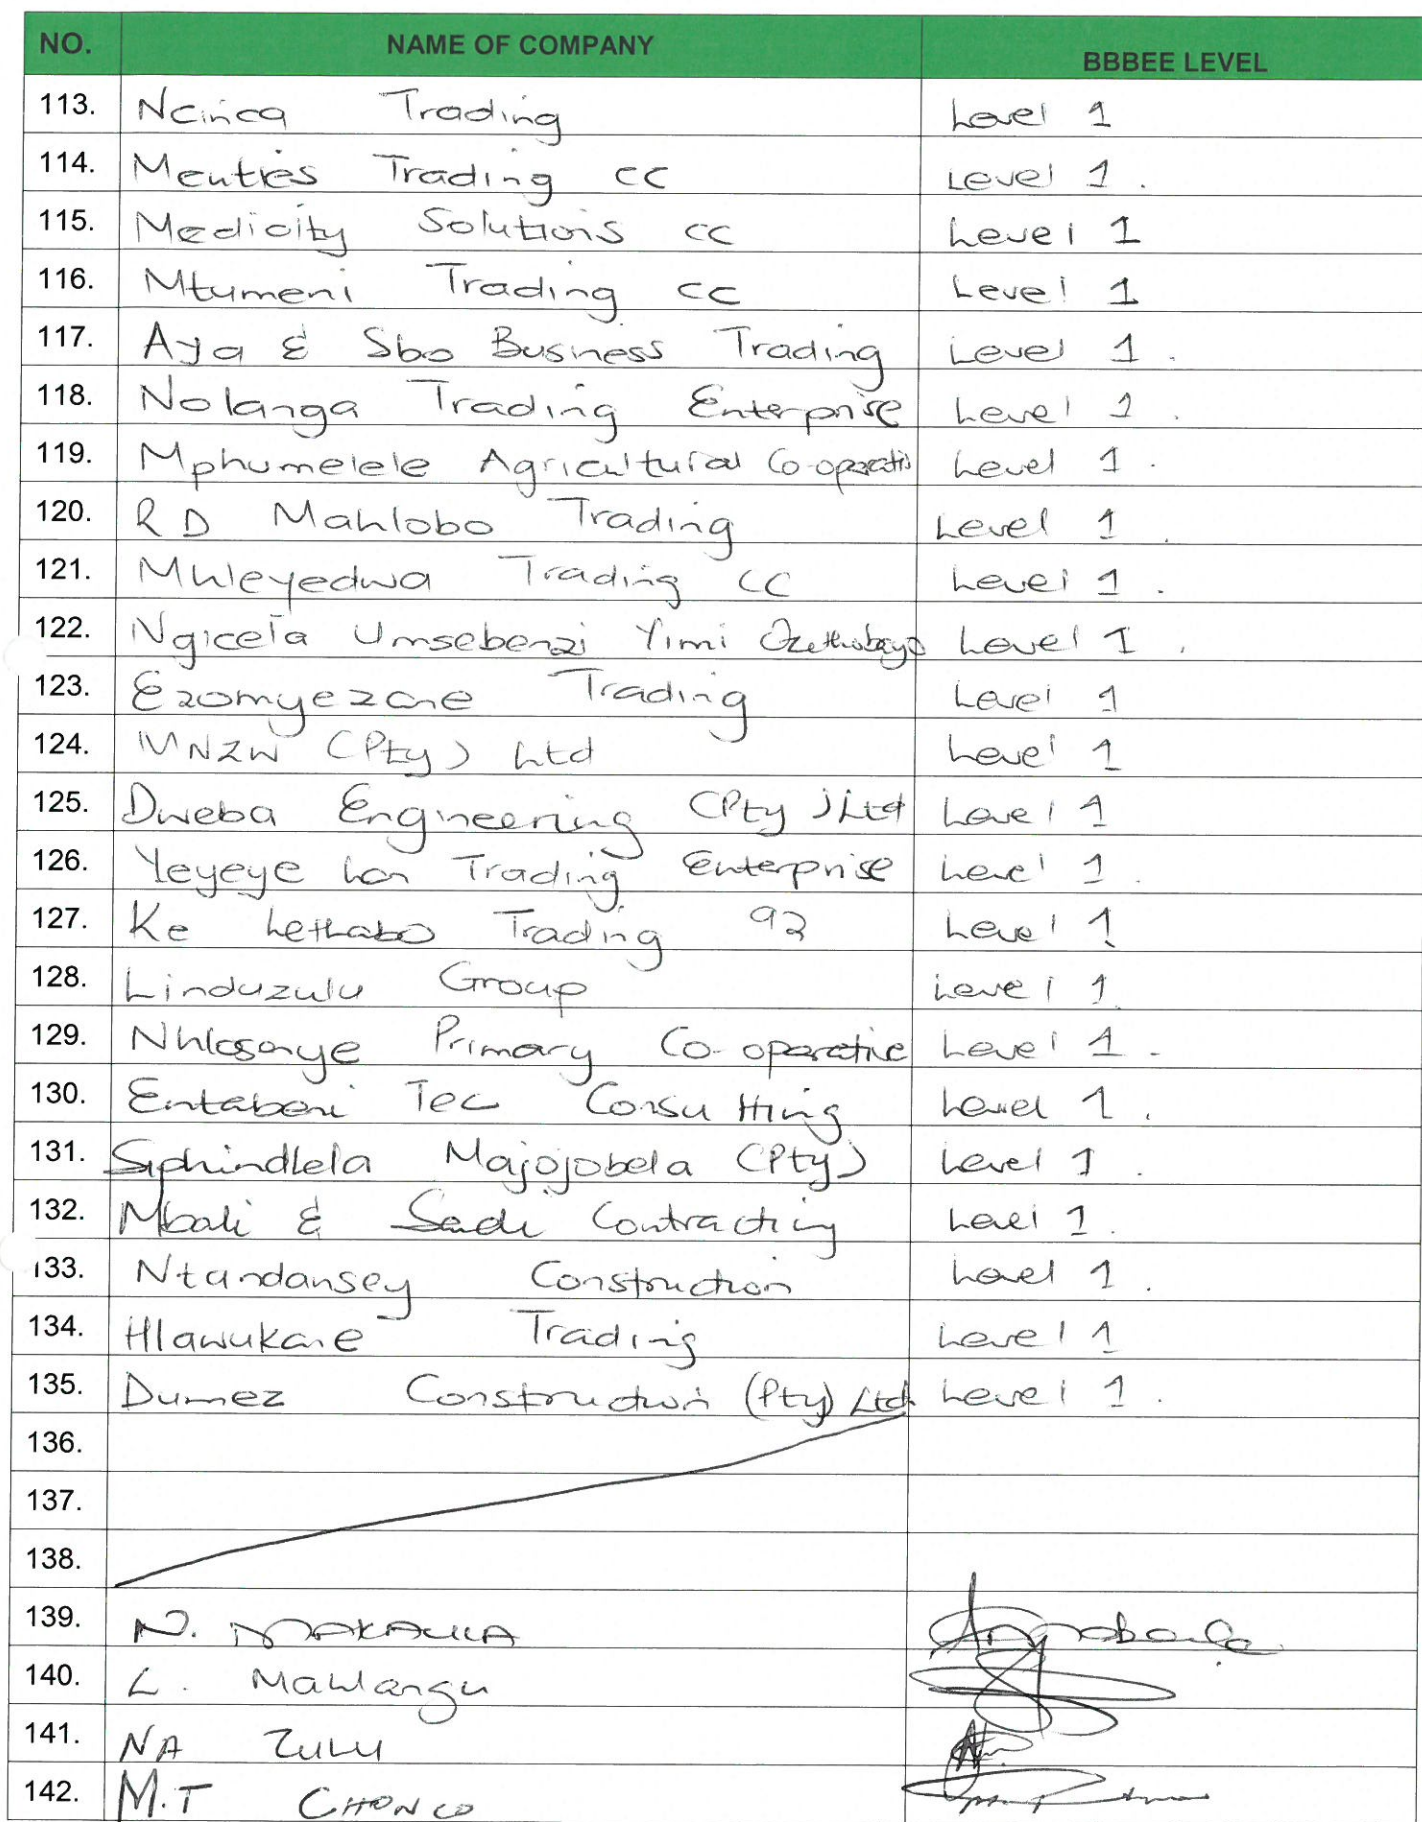 NO. NAME OF COMPANY BBBEE LEVEL
113. Ncinca Trading Level 1
114. Menties Trading cc Level 1.
115. Medicity Solutions cc Level 1
116. Mtumeni Trading cc Level 1
117. Aya & Sbo Business Trading Level 1.
118. Nolanga Trading Enterprise Level 1.
119. Mphumelele Agricultural Co-operativ Level 1.
120. R D Mahlobo Trading Level 1.
121. Mhleyedwa Trading CC Level 1.
122. Ngicela Umsebenzi Yimi Ozethobayo Level 1.
123. Ezomyezane Trading Level 1
124. MNZW (Pty) Ltd Level 1
125. Dweba Engineering (Pty) Ltd Level 1
126. Yeyeye Lan Trading Enterprise Level 1.
127. Ke Lethabo Trading 92 Level 1
128. Linduzulu Group Level 1.
129. Nhlosonye Primary Co-operative Level 1.
130. Entabeni Tec Consulting Level 1.
131. Siphindlela Majojobela (Pty) Level 1.
132. Mbali & Sandi Contracting Level 1.
133. Ntandansey Construction Level 1.
134. Hlawukane Trading Level 1
135. Dumez Construction (Pty) Ltd Level 1.
136.
137.
138.
139. N. MAKAULA
140. L. Mahlangu
141. NA ZULU
142. M.T CHONCO